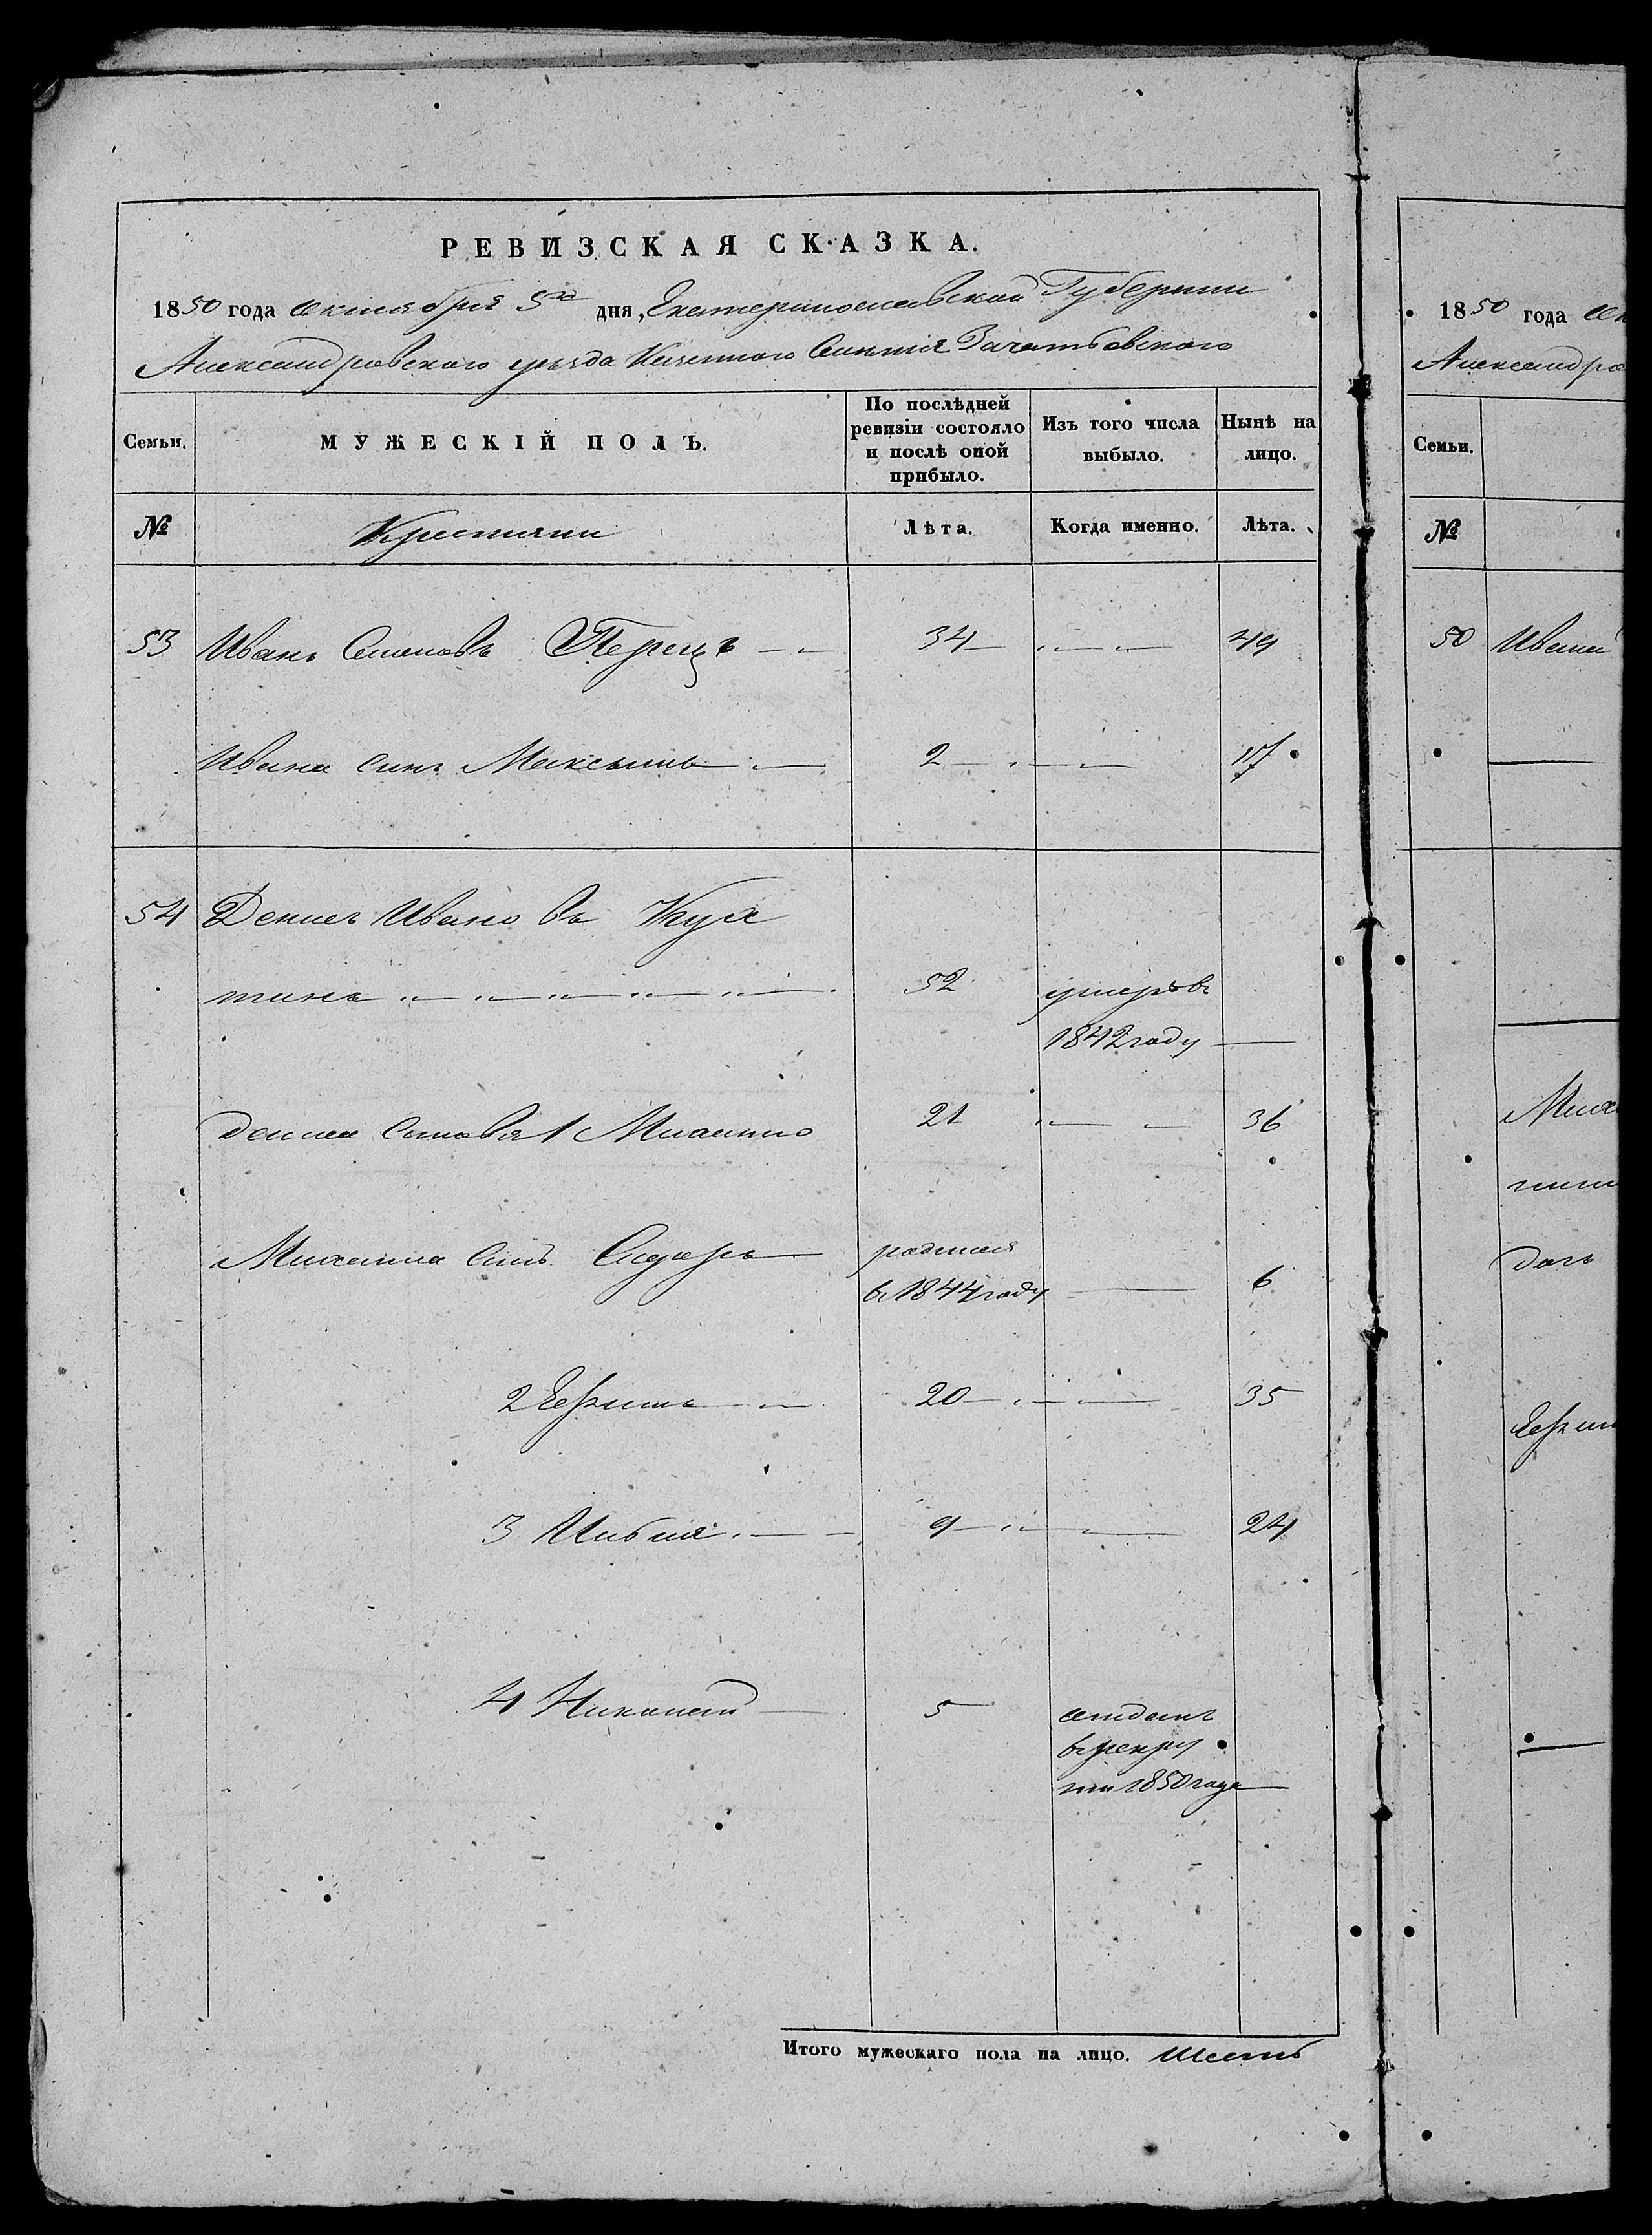 РЕВИЗСКАЯ СКАЗКА.
1850 года октября 5го дня, Екатеринославской Губернии
Александровского уезда Казенного Селения Зачатьевского
Семьи. МУЖЕСКІЙ ПОЛЪ. По послѣдней ревизіи состояло и послѣ оной прибыло. Изъ того числа выбыло. Нынѣ на лицо.
№ Крестьяни Лѣта. Когда именно. Лѣта.
53 Иванъ Семеновъ Перецъ 34 49
Ивана Синъ Максымъ 2 17
54 Денисъ Ивановъ
52 умеръ въ
1842 году
Дениса Синовья 1 Михаило 21 36
Михаила Синъ Сидоръ родился
в 1844 году 6
2 Ефимъ 20 35
3 9 24
4 5 отданъ
в рекру
ти 1850 года
Итого мужескаго пола на лицо. Шесть
1850 года
Семьи.
№
50